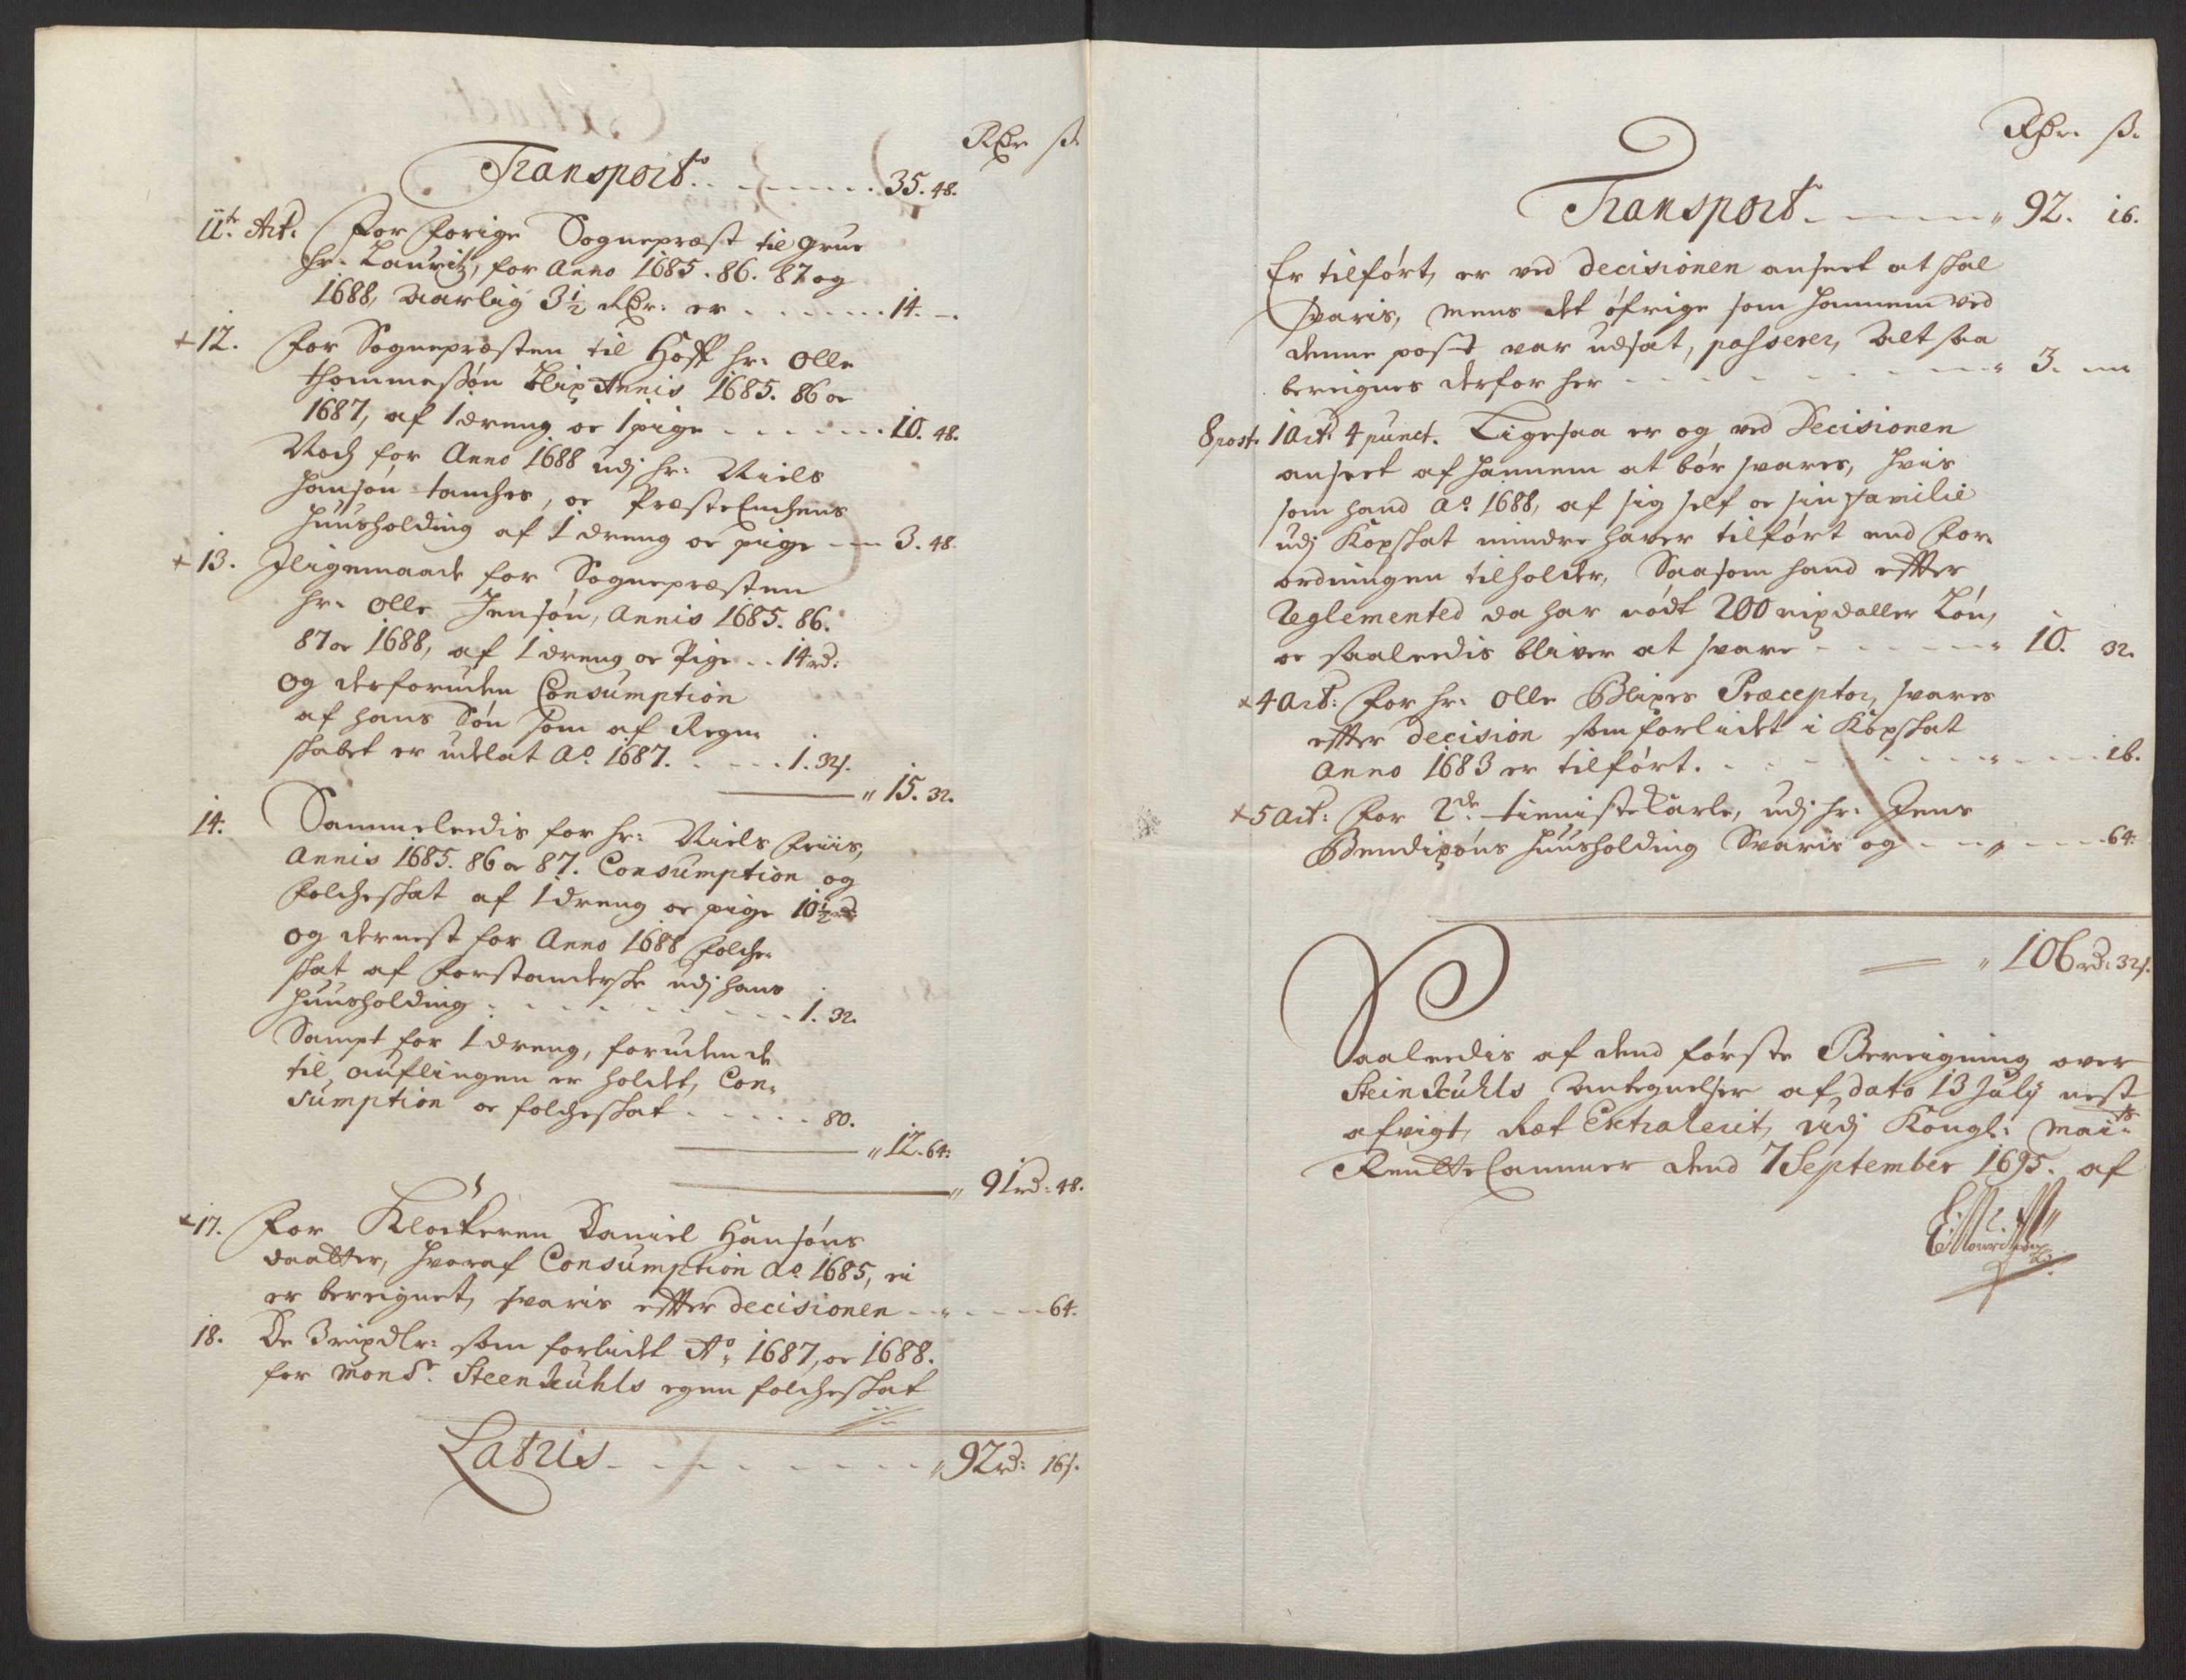 Rdr ß.
Transport . . . . . 35. 48.
11te Art. For forige Sognepræst til Grue
hr. Lauritz, for Anno 1685. 86. 87 og
1688, Aarlig 3½ Rdr: er . . . . . 14. –
+ 12. For Sognepræsten til Hoff hr: Olle
Thommesøn Blix Annis 1685. 86 oc
1687, af 1 dreng oc 1 pige . . . . . 10. 48.
Noch for Anno 1688 udj hr: Niels
Hansøn Tanches, oc Præste Enchens
Huusholding af 1 dreng oc piige – – 3. 48.
+ 13. Iligemaade for Sognepræsten
hr. Olle Jensøn, Annis 1685. 86.
87 oc 1688, af 1 dreng oc Pige . . 14 rd:
og derforuden Consumption
af hans Søn som af Regn-
skabet er udelat Ao 1687. . . . . 1. 32 s.
" 15. 32.
14. Sammeledis for hr: Niels Friis,
Annis 1685. 86 oc 87. Consumption og
Folcheskat af 1 dreng oc pige 10½ rd:
og dernest for Anno 1688 Folche-
skat af Forstanderske udj hans
Huusholding . . . . . 1. 32.
Sampt for 1 dreng, foruden de
til auflingen er holdt, Con-
sumption oc folcheskat . . . . . 80.
" 12. 64:
" 91 rd: 48.
+ 17. For Klockeren Daniel Hansøns
daatter, hvoraf Consumption Ao 1685, ei
er bereignet, svaris efter decisionen . . . . 64.
18. De 3 rixdlr: som forbiidt Ao 1687, oc 1688.
for Monsr. Steenkuhls egen folcheskat
Latris . . . . . " 92 rd: 16 s.
Rdr. ß.
Transport . . . . . " 92. 16.
Er tilført, er ved decisionen anseet at skal
svaris, mens det øfrige som hannem ved
denne post var udsat, passerer, alt saa
bereignes derfor her . . . . . " 3. –
8 post. 1 Art: 4 punct. Ligesaa er og ved Decisionen
anseet af hannem at bør svares, hvis
som hand Ao 1688, af sig self oc sin familie
udj Kopskat mindre haver tilført end For-
ordningen tilholder, Saasom hand efter
Reglemented da har nødt 200 rixdaller Løn,
oc saaledis bliver at svare . . . . . " 10. 32.
+ 4 Art: For hr. Olle Blixes Præceptor, svares
efter decision som forbiidt i Kopskat
Anno 1683 er tilført. . . . . . " 16.
+ 5 Art: For 2de tieniste Karle, udj hr. Jens
Bendixøns Huusholding Svaris og . . " . . 64.
" 106 rd: 32 s.
Saaledis af dend første Bereigning over
Steinkuhls Antegnelser af dato 13 July nest
afvigt, Ret Extraherit, Udj Kongl: Maits:
Rentte Cammer dend 7 September 1695. af